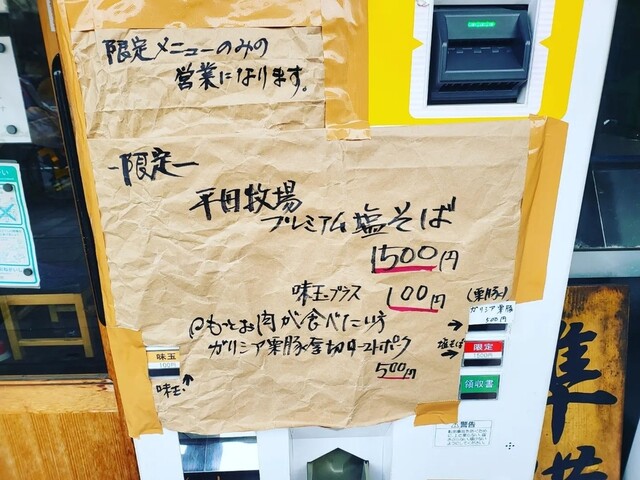 限定メニューのみの
営業になります。
-限定-
平田牧場
プレミアム塩そば
1500円
味玉プラス 100円
@もっとお肉が食べたい方 →
ガリシア栗豚厚切ローストポーク
500円
(栗豚)
ガリシア栗豚
500円
塩そば
限定
1500円
領収書
味玉
100円
味玉↑
⚠警告
準備